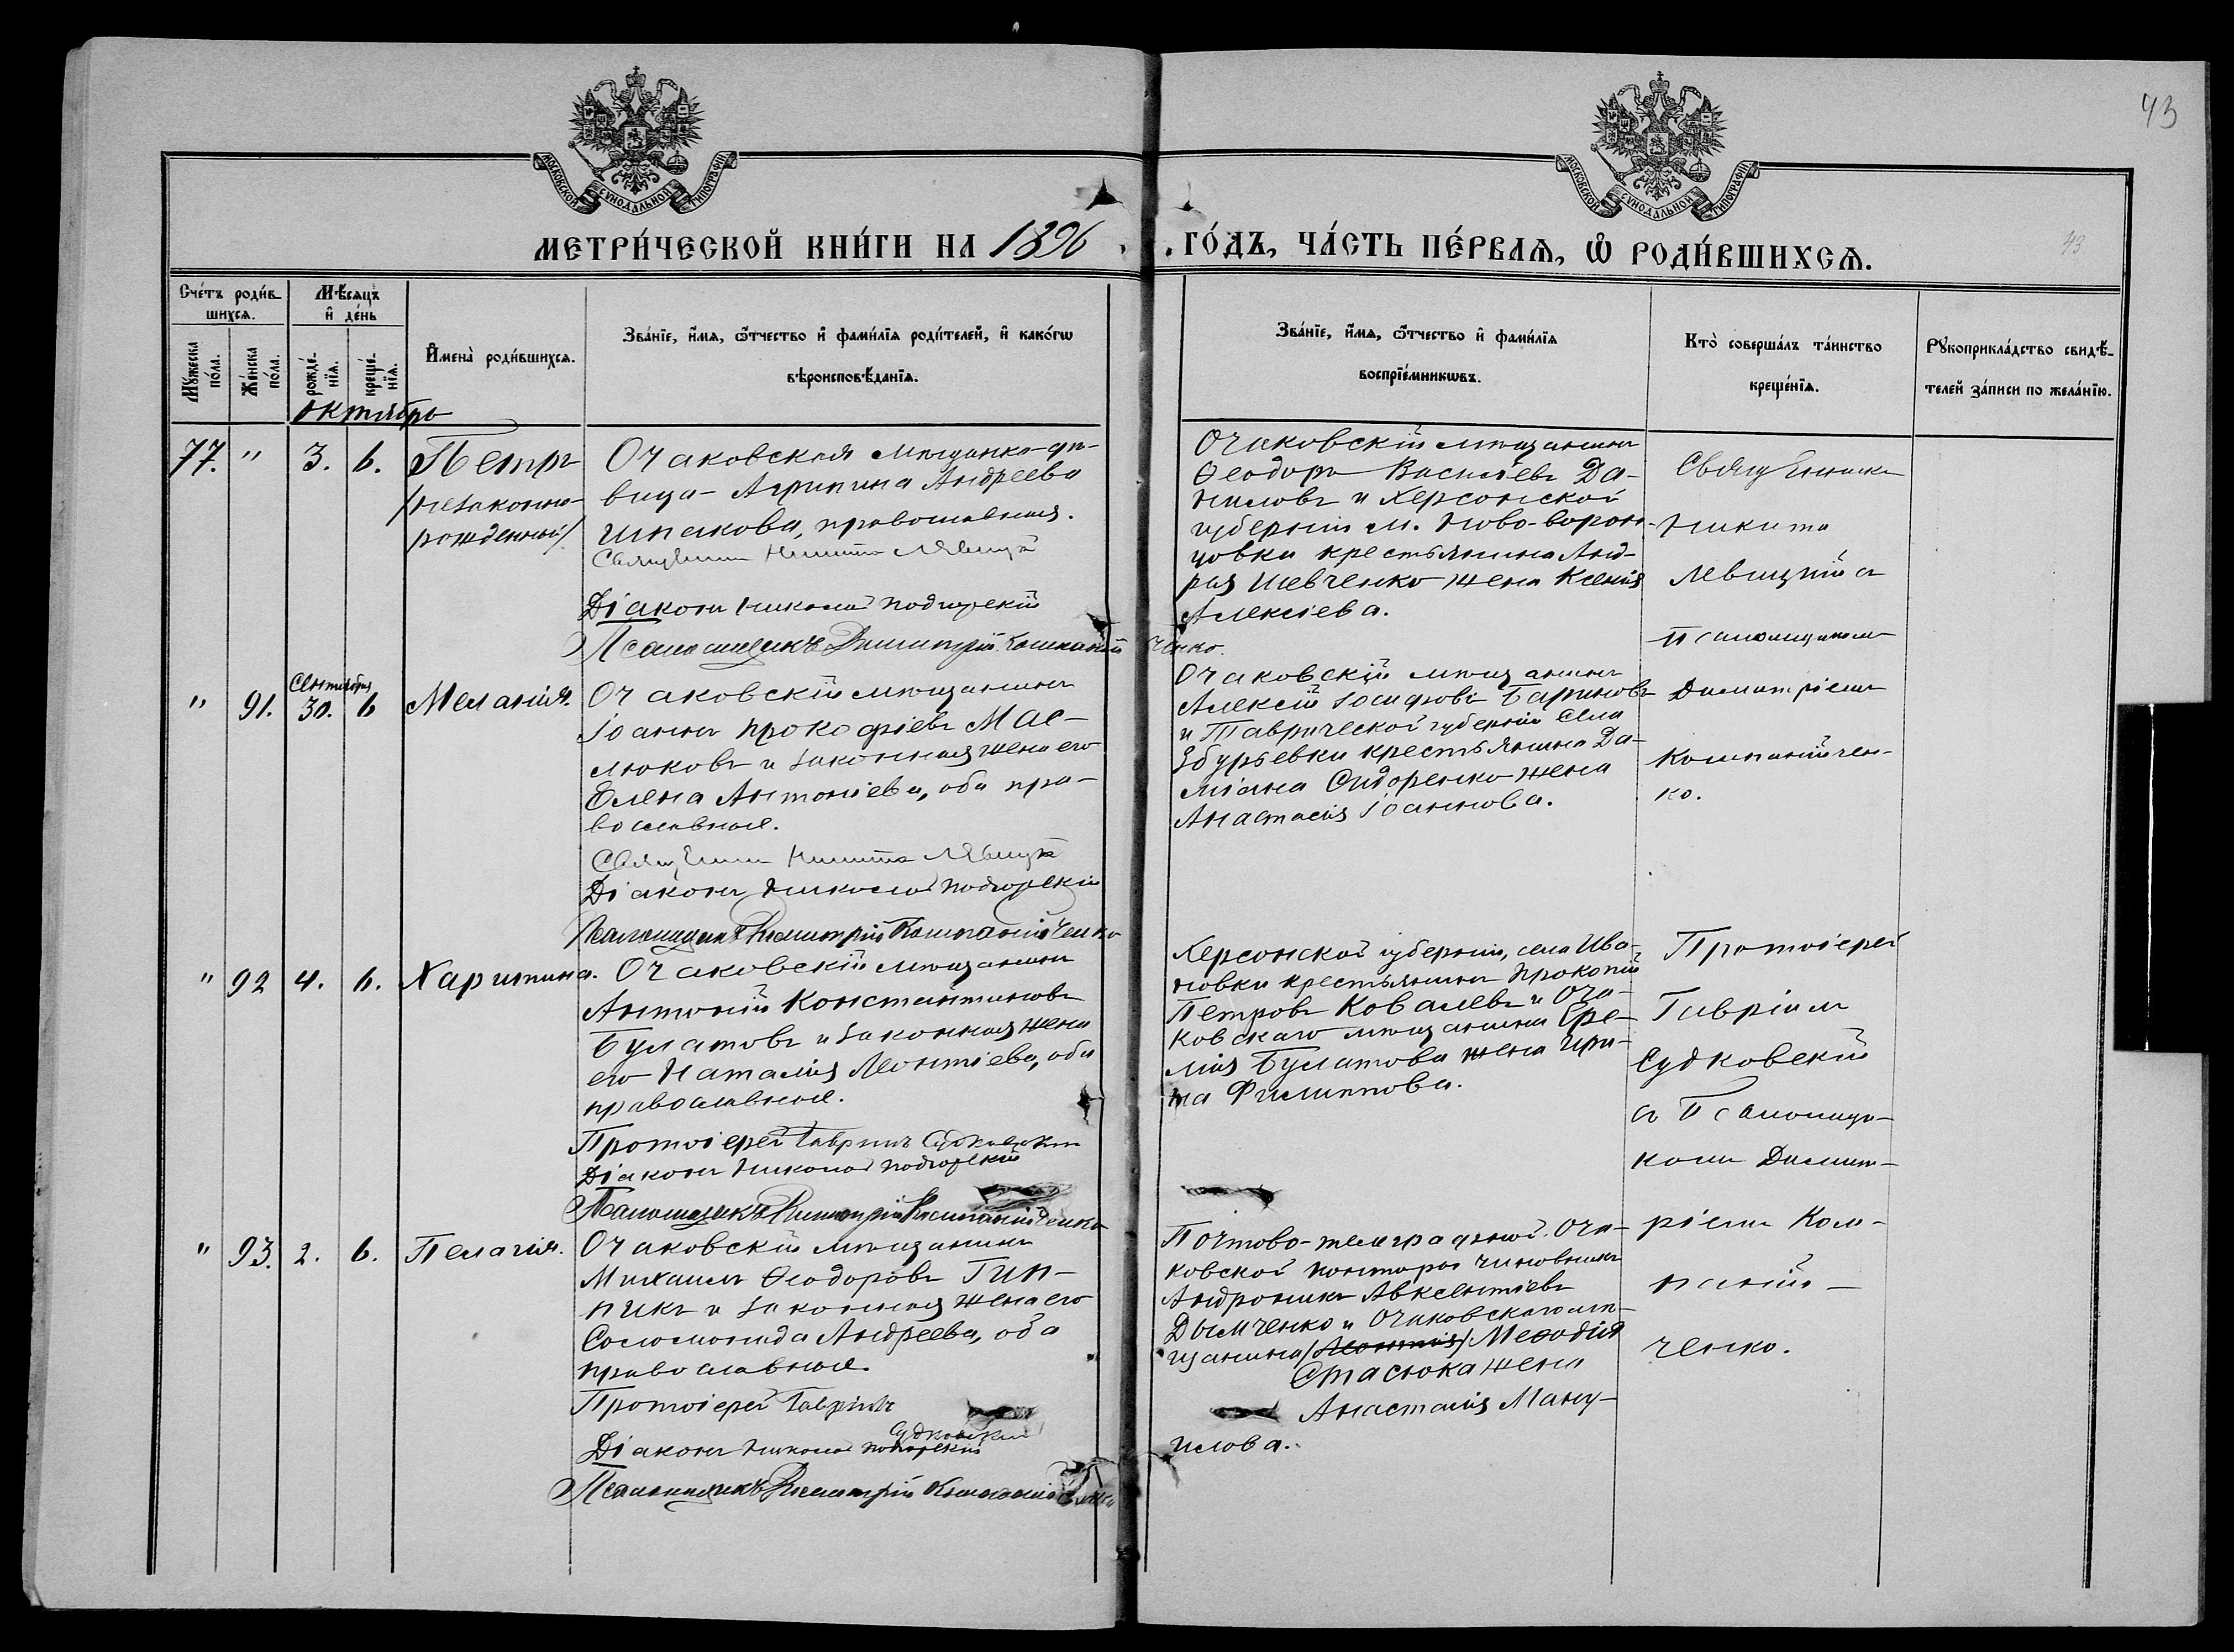 43
МОСКОВСКОЙ СУНОДАЛЬНОЙ ТИПОГРАФІИ
МОСКОВСКОЙ СУНОДАЛЬНОЙ ТИПОГРАФІИ
МЕТРИ́ЧЕСКОЙ КНИ́ГИ НА 1896 ГО́ДЪ, ЧА́СТЬ ПЕ́РВАѦ, Ѡ҆ РОДИ́ВШИХСѦ.
43
Сче́тъ роди́в-
шихсѧ.
Мꙋ́жеска по́ла.
Же́нска по́ла.
Мѣ́сѧцъ
и҆ де́нь
рожде́-
нїѧ.
креще́-
нїѧ.
И҆мена̀ роди́вшихсѧ.
Зва́нїе, и҆́мѧ, ѻ҆́тчество и҆ фами́лїѧ роди́телей, и҆ како́гѡ
вѣроисповѣ́данїѧ.
Зва́нїе, и҆́мѧ, ѻ҆́тчество и҆ фами́лїѧ
воспрїе́мникѡвъ.
Кто̀ соверша́лъ та́инство
креще́нїѧ.
Рꙋкоприкла́дство свидѣ́-
телей за́писи по жела́нїю.
Октябрь
77. " 3. 6. Петръ
/незаконно-
рожденный/
Очаковская мѣщанка-дѣ-
вица - Агрипина Андреева
Шпакова, православная.
Священникъ Никита Левицкій
Діаконъ Николай Подгорскій
Псаломщикъ Димитрій Компанійченко
Очаковскій мѣщанинъ
Ѳеодоръ Василіевъ Да-
ниловъ и Херсонской
губерніи м. Ново-ворон-
цовки крестьянина Анд-
рея Шевченко жена Ксенія
Алексіева.
Священникъ
Никита
Левицкій съ
Псаломщикомъ
Димитріемъ
Компанійчен-
ко.
" 91. Сентября 30. 6 Меланія.
Очаковскій мѣщанинъ
Іоаннъ Прокофіевъ Мас-
люковъ и законная жена его
Елена Антоніева, оба пра-
вославные.
Священникъ Никита Левицкій
Діаконъ Николай Подгорскій
Псаломщикъ Димитрій Компанійченко
Очаковскій мѣщанинъ
Алексій Іосифовъ Бариновъ
и Таврической губерніи села
Збурьевки крестьянина Да-
міана Сидоренко жена
Анастасія Іоаннова.
" 92 4. 6. Харитина.
Очаковскій мѣщанинъ
Антоній Константиновъ
Булатовъ и законная жена
его Наталія Леонтіева, оба
православные.
Протоіерей Гавріилъ Судковскій
Діаконъ Николай Подгорскій
Псаломщикъ Димитрій Компанійченко
Херсонской губерніи, села Ива-
новки крестьянинъ Прокопій
Петровъ Ковалевъ и Оча-
ковскаго мѣщанина Ере-
мія Булатова жена Ири-
на Филиппова.
Протоіерей
Гавріилъ
Судковскій
съ Псаломщи-
комъ Димит-
ріемъ Ком-
паній-
ченко.
" 93. 2. 6. Пелагія.
Очаковскій мѣщанинъ
Михаилъ Ѳеодоровъ Гип-
пикъ и законная жена его
Соломонида Андреева, оба
православные.
Протоіерей Гавріилъ
Судковскій
Діаконъ Николай Подгорскій
Псаломщикъ Димитрій Компанійченко
Почтово-телеграфной Оча-
ковской конторы чиновникъ
Андроникъ Авксентіевъ
Дымченко и Очаковскаго мѣ-
щанина /Леонтія/ Меѳодія
Стасюка жена
Анастасія Ману-
илова.